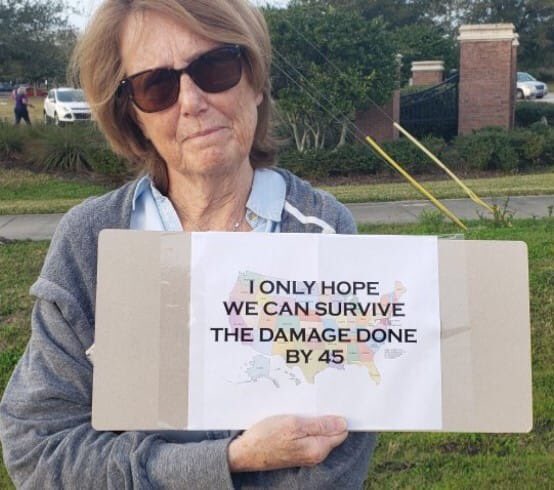 I ONLY HOPE
WE CAN SURVIVE
THE DAMAGE DONE
BY 45